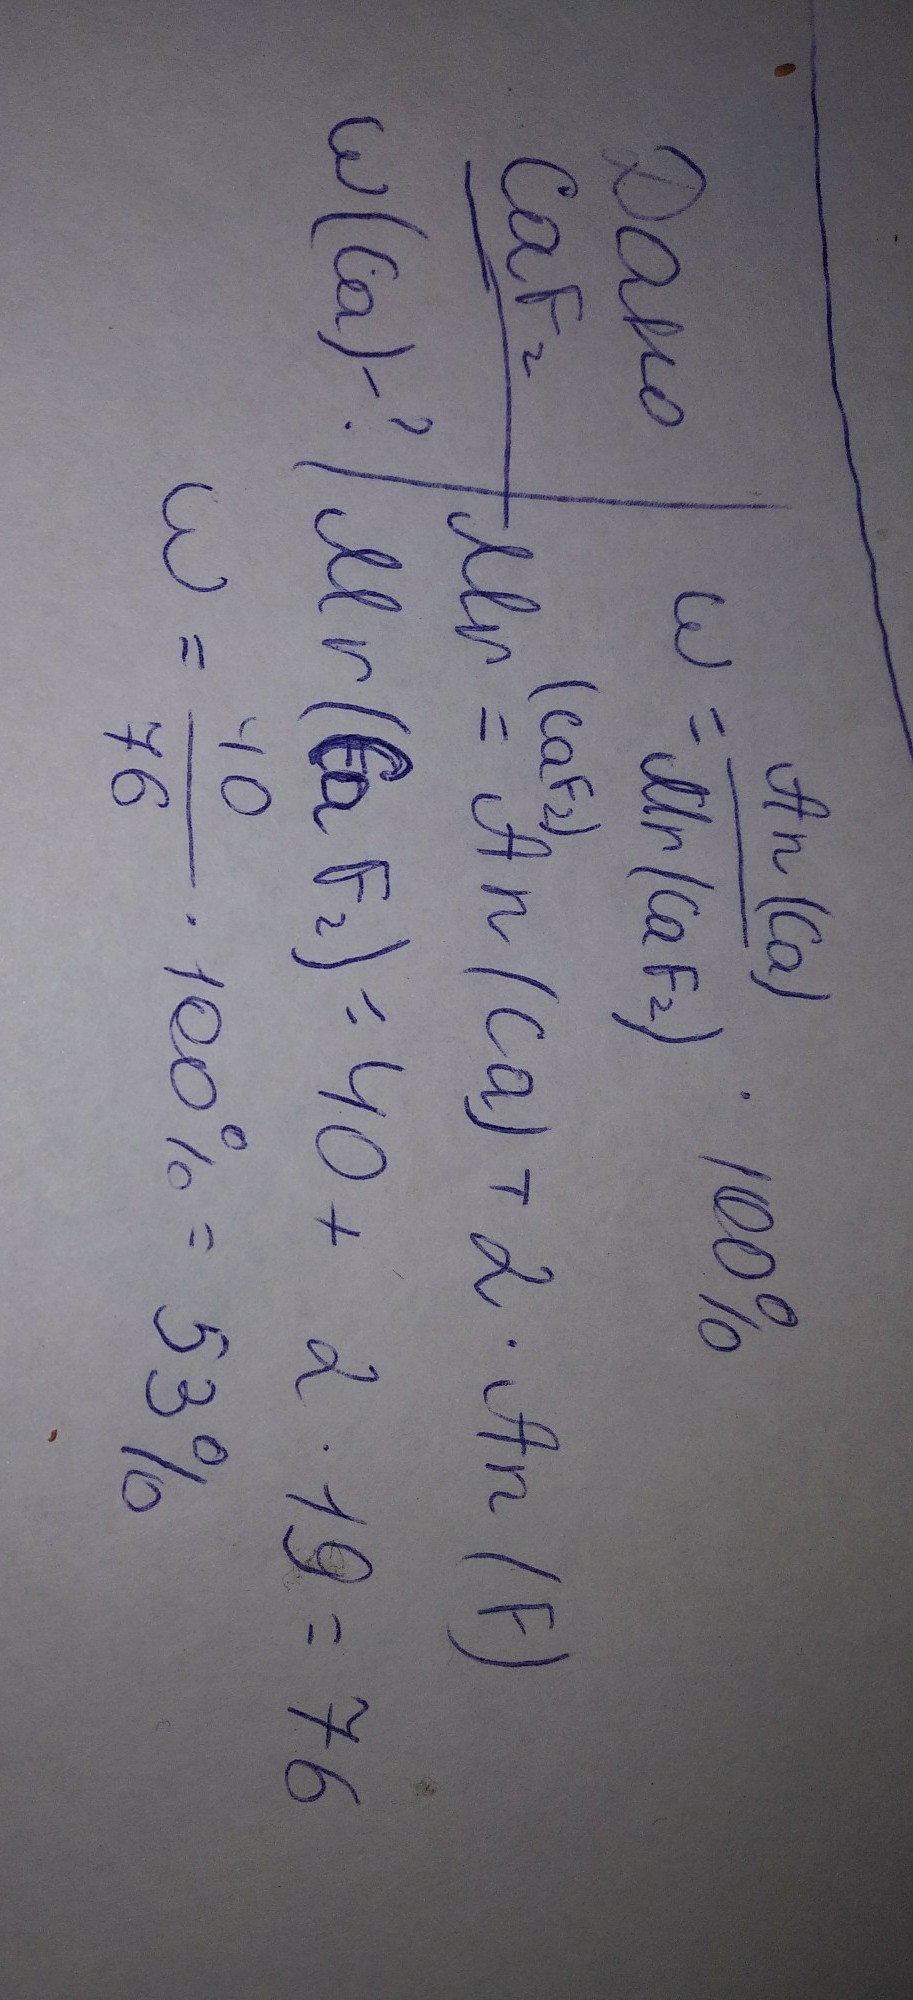 Дано
CaF₂
ω(Ca)-?
ω = Ar(Ca) / Mr(CaF₂) · 100%
Mr(CaF₂) = Ar(Ca) + 2 · Ar(F)
Mr(CaF₂) = 40 + 2 · 19 = 76
ω = 40 / 76 · 100% = 53%